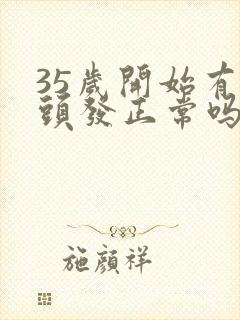 35歲開始有
頭發正常嗎
施顔祥